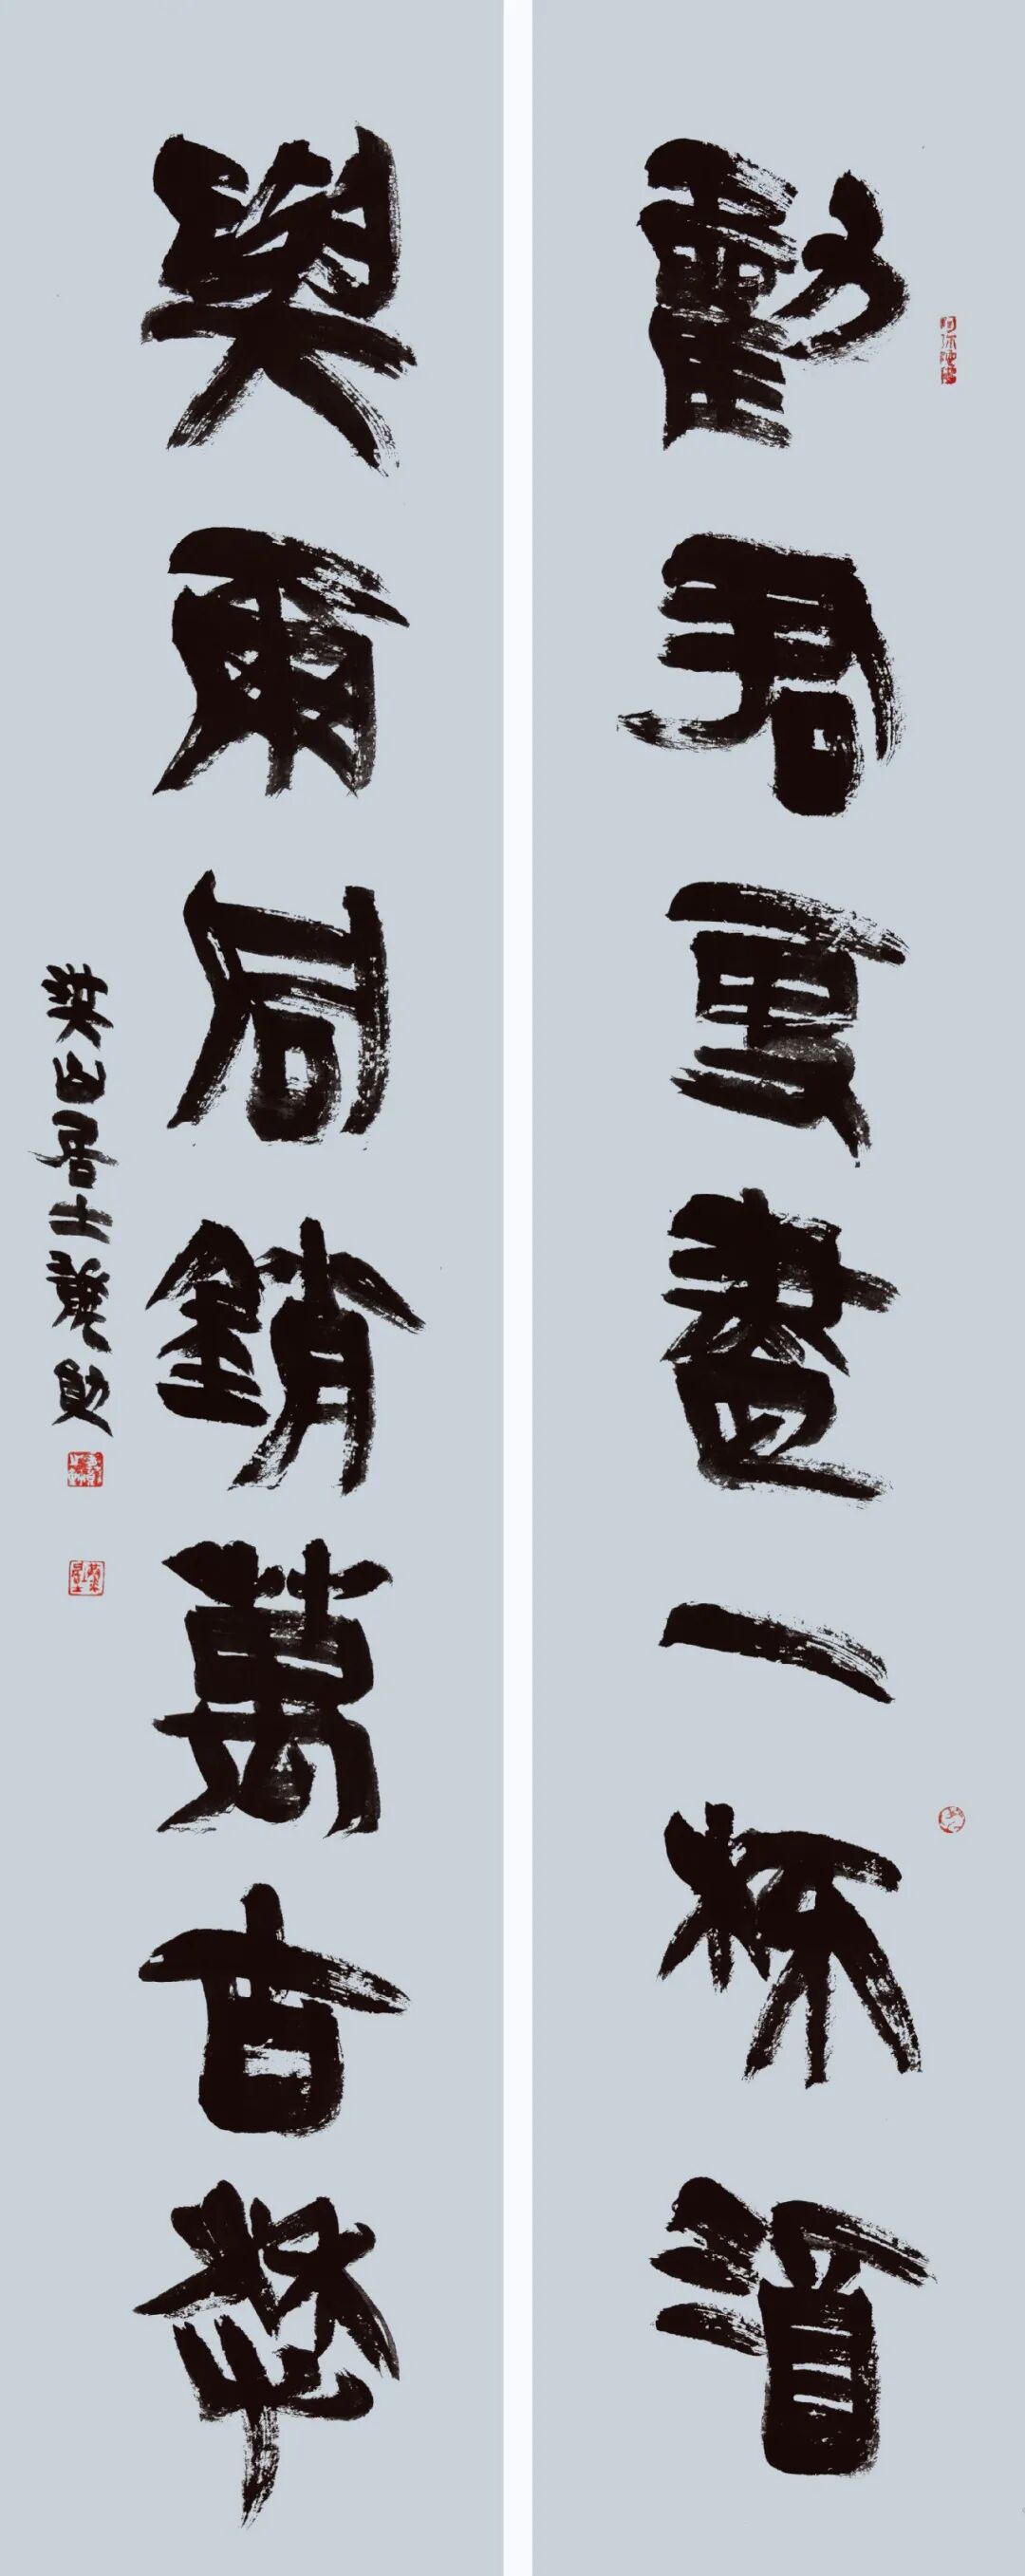 勸君更盡一杯酒
與爾同銷萬古愁
山居士